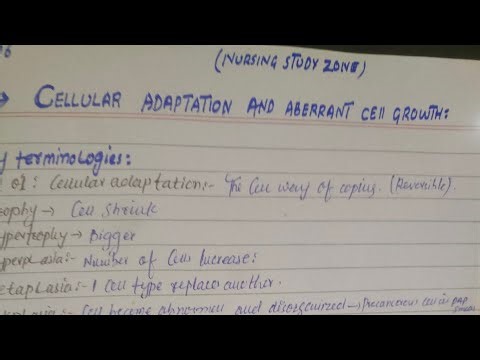 06
(NURSING STUDY ZONE)
→ CELLULAR ADAPTATION AND ABERRANT CELL GROWTH:
y terminologies:
01: Cellular adaptation:- The Cell way of coping. (Reversible).
ophy → Cell Shrink
ypertrophy → Bigger
yperplasia:- Number of Cell Increase:
etaplasia:- 1 Cell type replace another.
plasia:- Cell become abnormal and disorganized → Precancerous cell in PAP